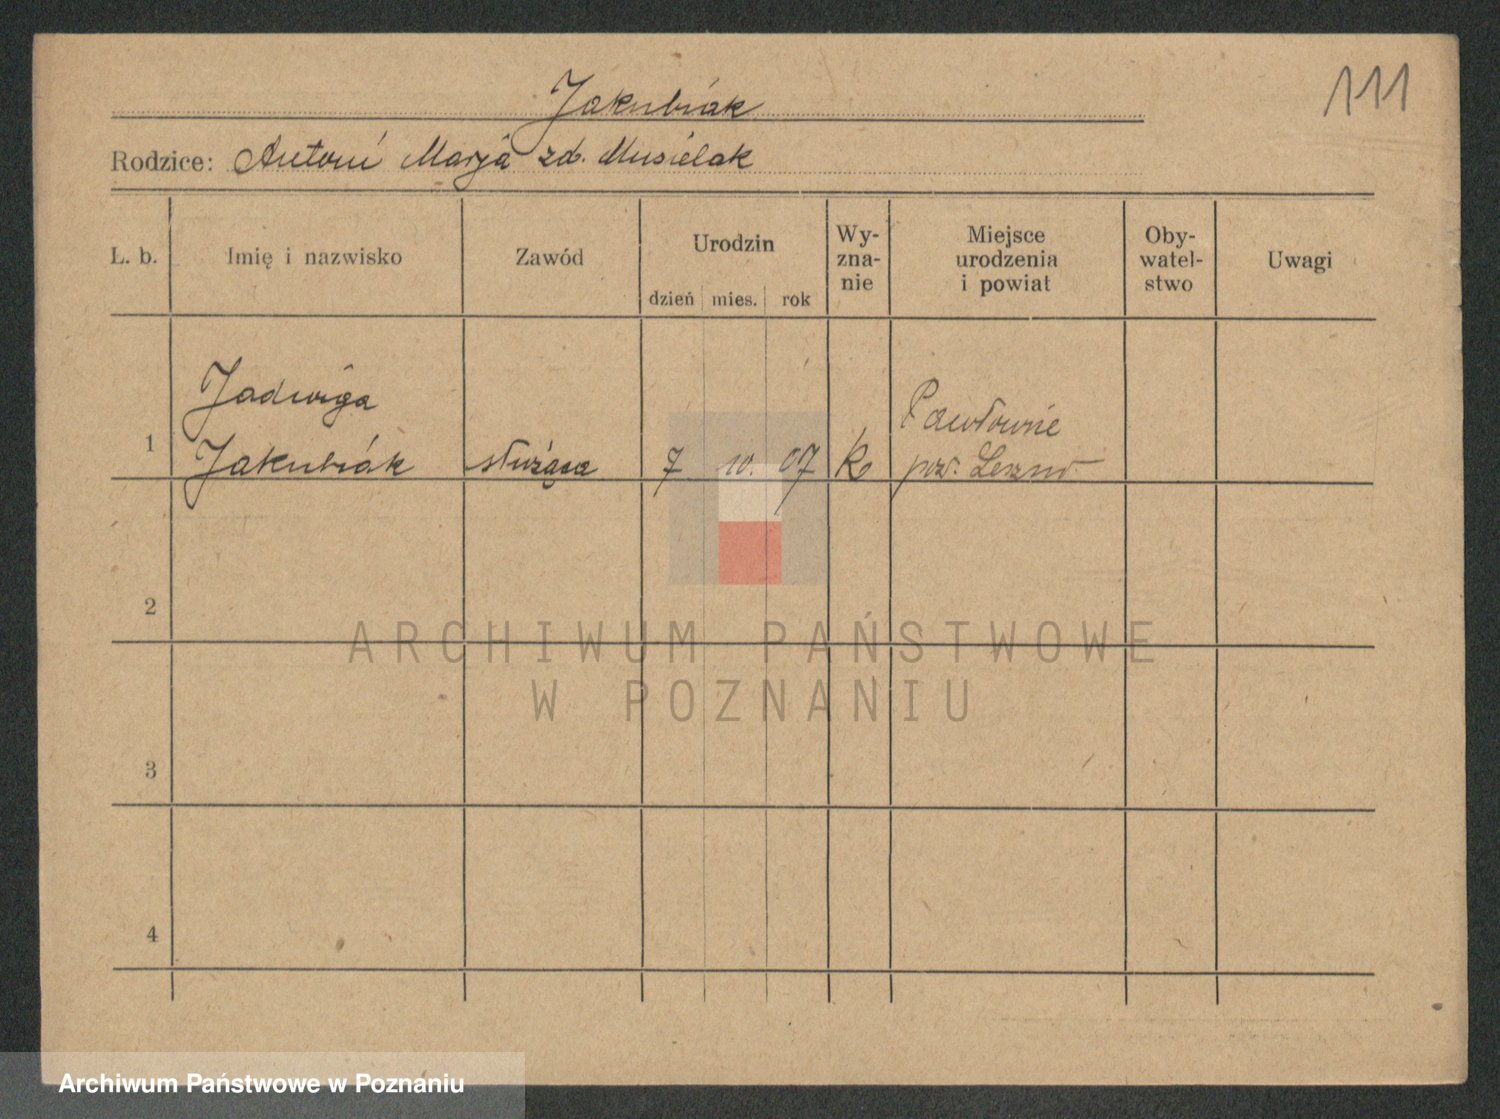 111
Jakubiak
Rodzice: Antoni Marja zd. Musielak
L. b.
Imię i nazwisko
Zawód
Urodzin
dzień mies. rok
Wy-
zna-
nie
Miejsce
urodzenia
i powiat
Oby-
watel-
stwo
Uwagi
1
Jadwiga
Jakubiak
służąca
7 10. 07
k
Pawłowie
pow. Leszno
2
3
4
ARCHIWUM PAŃSTWOWE
W POZNANIU
Archiwum Państwowe w Poznaniu